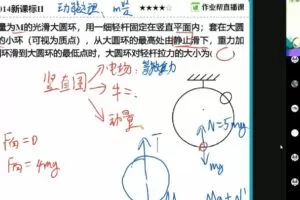 014新课标II
动能定理,m
作业帮直播课
量为M的光滑大圆环,用一细轻杆固定在竖直平面内;套在大圆
的小环(可视为质点),从大圆环的最高处由静止滑下,重力加
环滑到大圆环的最低点时,大圆环对轻杆拉力的大小为( C
竖直圆
电场:等效重力
牛二:
动量
F向=0
F向=4mg
T
N=5mg
mg
Mg+N'